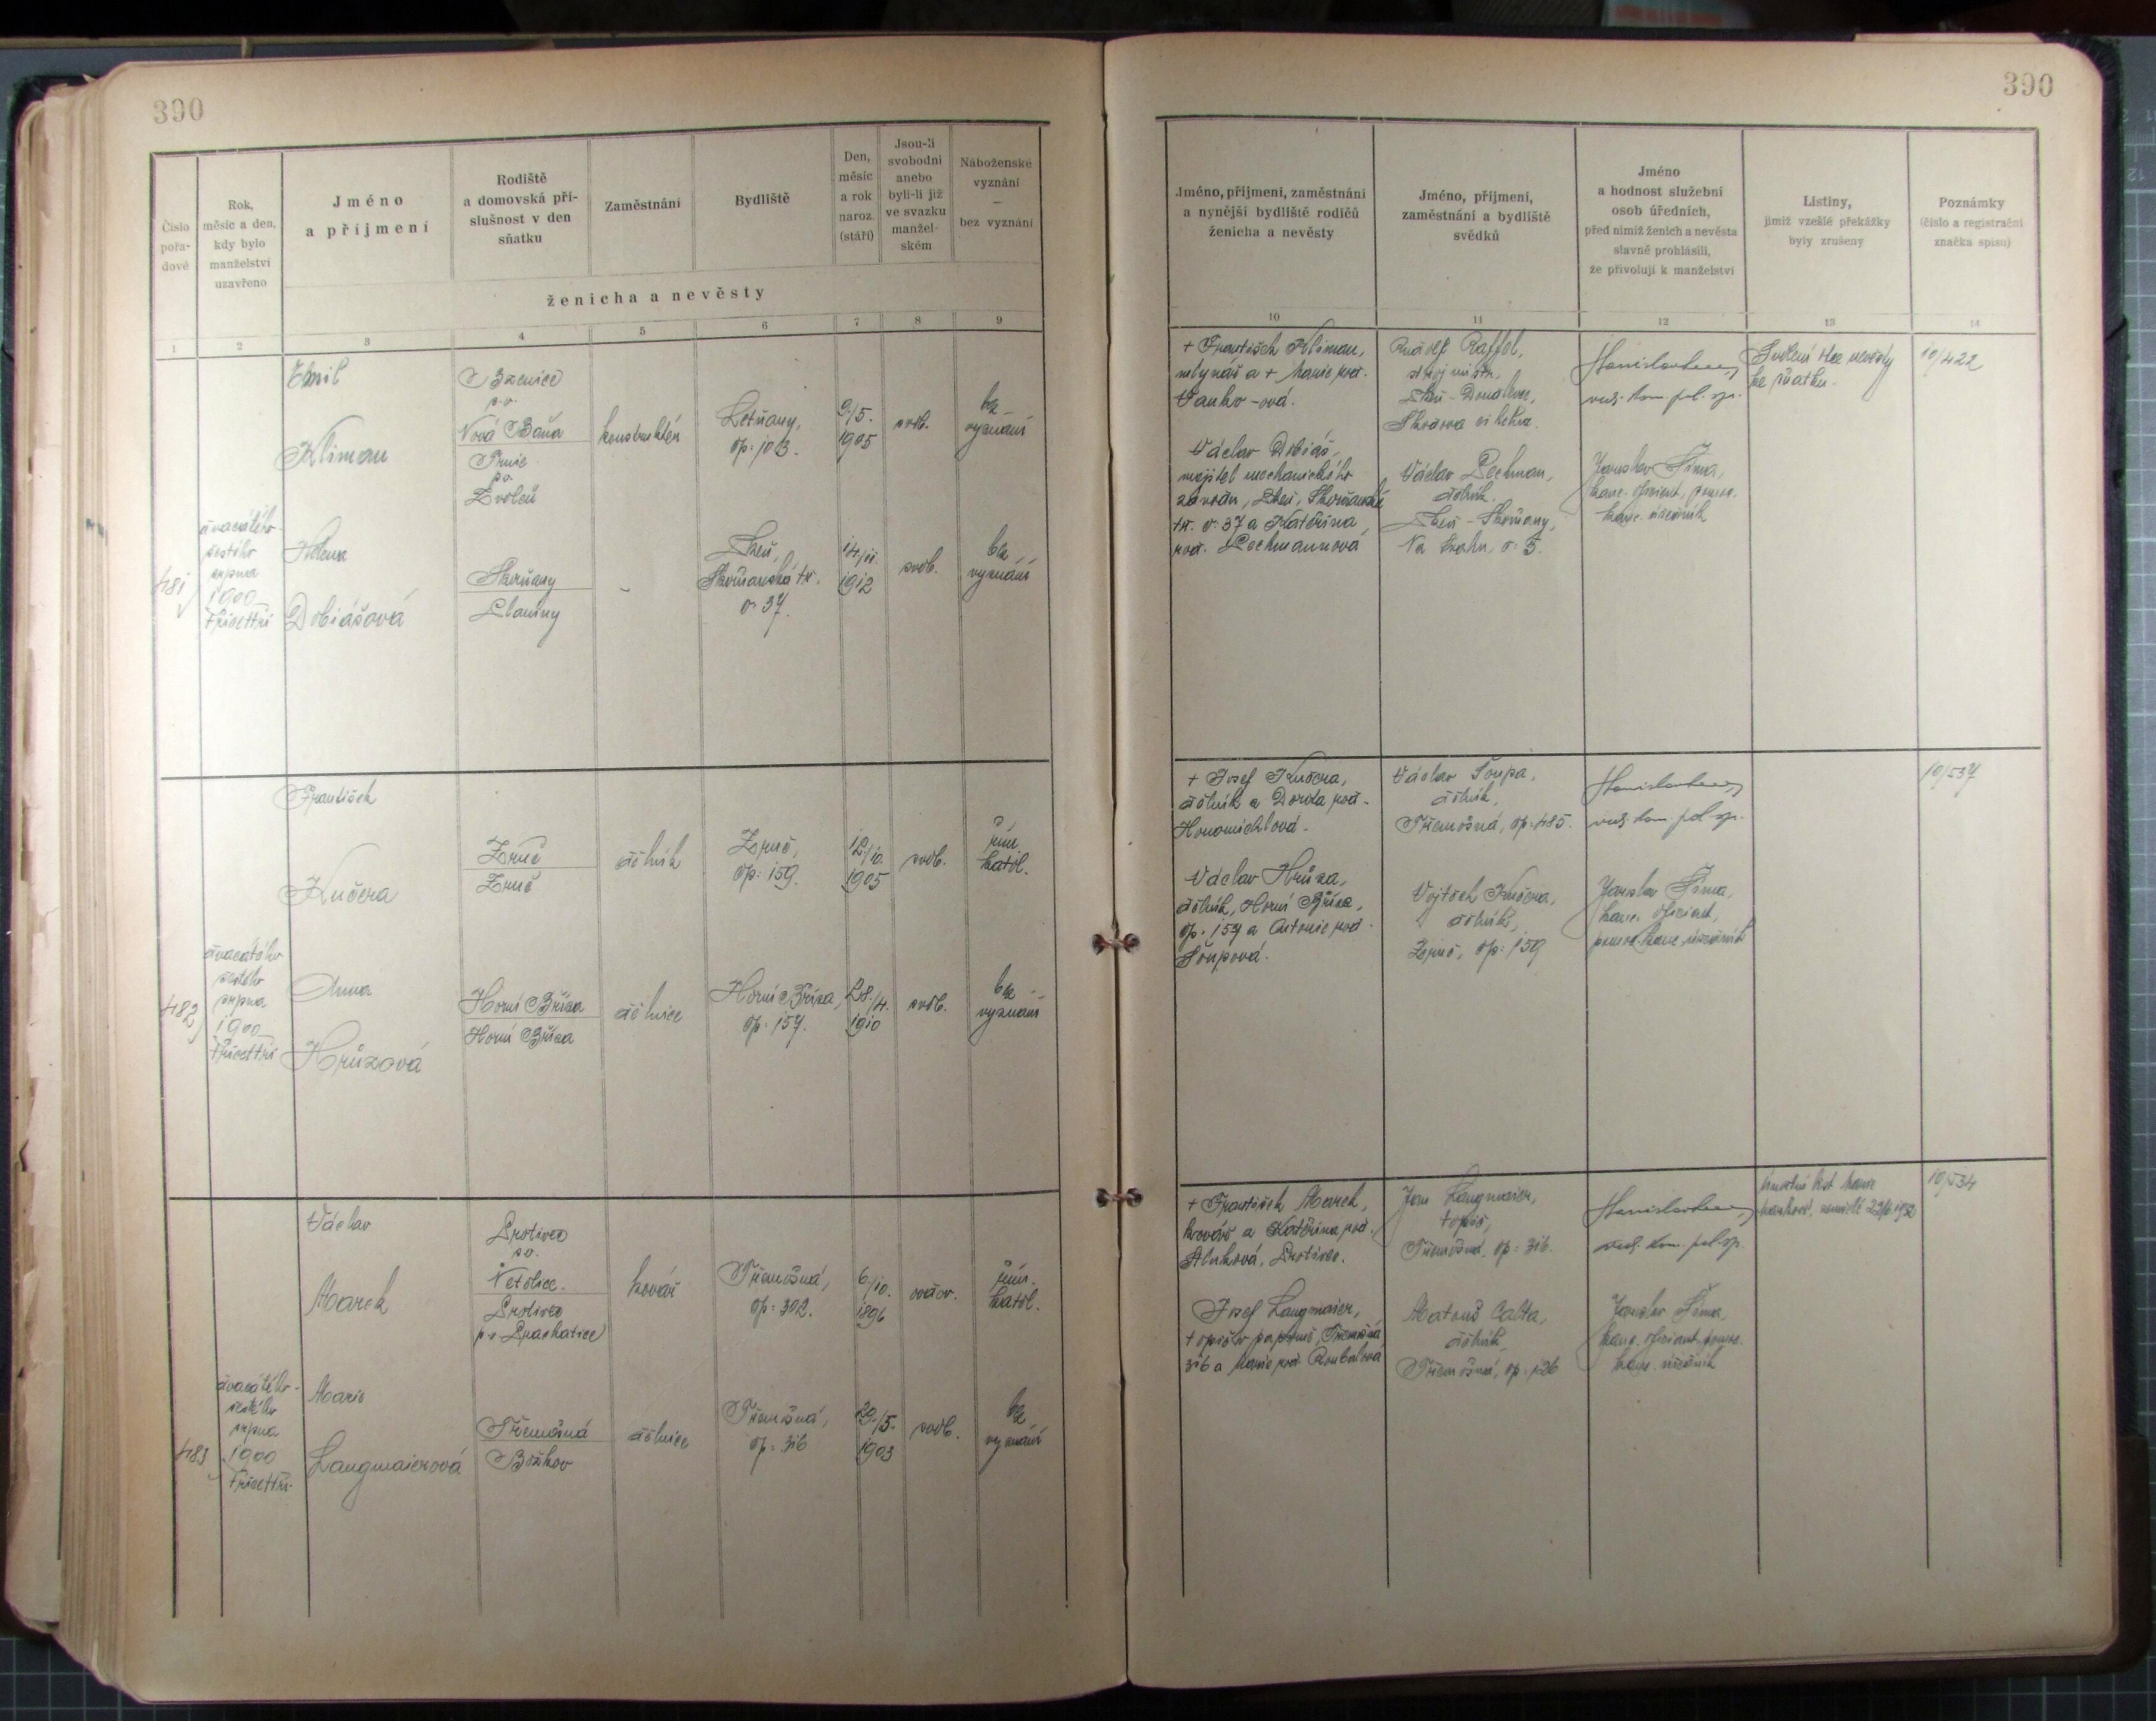 390
390
Číslo
pořa-
dové
Rok,
měsíc a den,
kdy bylo
manželství
uzavřeno
Jméno
a příjmení
Rodiště
a domovská pří-
slušnost v den
sňatku
Zaměstnání
Bydliště
Den,
měsíc
a rok
naroz.
(stáří)
Jsou-li
svobodni
anebo
byli-li již
ve svazku
manžel-
ském
Náboženské
vyznání
–
bez vyznání
ženicha a nevěsty
1
2
3
4
5
6
7
8
9
Jméno, příjmení, zaměstnání
a nynější bydliště rodičů
ženicha a nevěsty
Jméno, příjmení,
zaměstnání a bydliště
svědků
Jméno
a hodnost služební
osob úředních,
před nimiž ženich a nevěsta
slavně prohlásili,
že přivolují k manželství
Listiny,
jimiž vzešlé překážky
byly zrušeny
Poznámky
(číslo a registrační
značka spisu)
10
11
12
13
14
481
dvacátého-
šestého
srpna
1900
třicettři
Emil
Kliman
Bzenice
p. o.
Nová Baňa
p. o.
Zvoleň
konstruktér
Letňany,
čp: 103.
9./5.
1905
svob.
bez
vyznání
Helena
Dobiášová
Skvrňany
Planiny
-
Plzeň,
Skvrňanská tř.
č: 37.
14./11.
1912
svob.
bez
vyznání
+ František Kliman,
mlynář a + Marie roz.
Vanko-ová.
Václav Dobiáš,
majitel mechanického
závodu, Plzeň, Skvrňanská
tř. č: 37 a Kateřina
roz. Pechmannová
Rudolf Raffel,
stroj. mistr,
Plzeň-Doudlevce,
Václav Pechman,
dělník.
Plzeň-Skvrňany,
Na č: 5.
rad. kom. pol. sp.
Jaroslav Šíma,
kanc. oficiant, pomoc.
kanc. úředník
Svolení otce nevěsty
ke sňatku.
10/422
482
dvacátého
šestého
srpna
1900
třicettři
František
Kučera
Zruč
Zruč
dělník
Zruč,
čp: 159.
12./10.
1905
svob.
řím.
katol.
Anna
Hrůzová
Horní Bříza
Horní Bříza
dělnice
Horní Bříza,
čp: 157.
28./4.
1910
svob.
bez
vyznání
+ Josef Kučera,
dělník a Dorota roz.
Honomichlová.
Václav Hrůza,
dělník, Horní Bříza,
čp: 157 a Antonie roz.
Šoupová.
Václav Šoupa,
dělník,
Třemošná, čp: 485.
Vojtěch Kučera,
dělník,
Zruč, čp: 159
rad. kom. pol. sp.
Jaroslav Šíma,
kanc. oficiant,
pomoc. kanc. úředník
10/537
483
dvacátého-
šestého
srpna
1900
třicettři
Václav
Marek
Protivec
p. o.
Netolice.
Protivec
p. o. Prachatice
kovář
Třemošná,
čp: 302.
6./10.
1896
vdov.
řím.
katol.
Marie
Langmaierová
Třemošná
Božkov
dělnice
Třemošná,
čp: 316
29./5.
1903
svob.
bez
vyznání
+ František Marek,
kovář a Kateřina roz.
Protivec.
Josef Langmaier,
Třemošná
316 a Marie roz. Roubalová
Jan Langmaier,
topič,
Třemošná, čp: 316.
Matouš Calta,
dělník,
Třemošná, čp: 126
rad. kom. pol. sp.
Jaroslav Šíma,
kanc. oficiant, pomoc.
kanc. úředník
Úmrtní list Marie
10/534